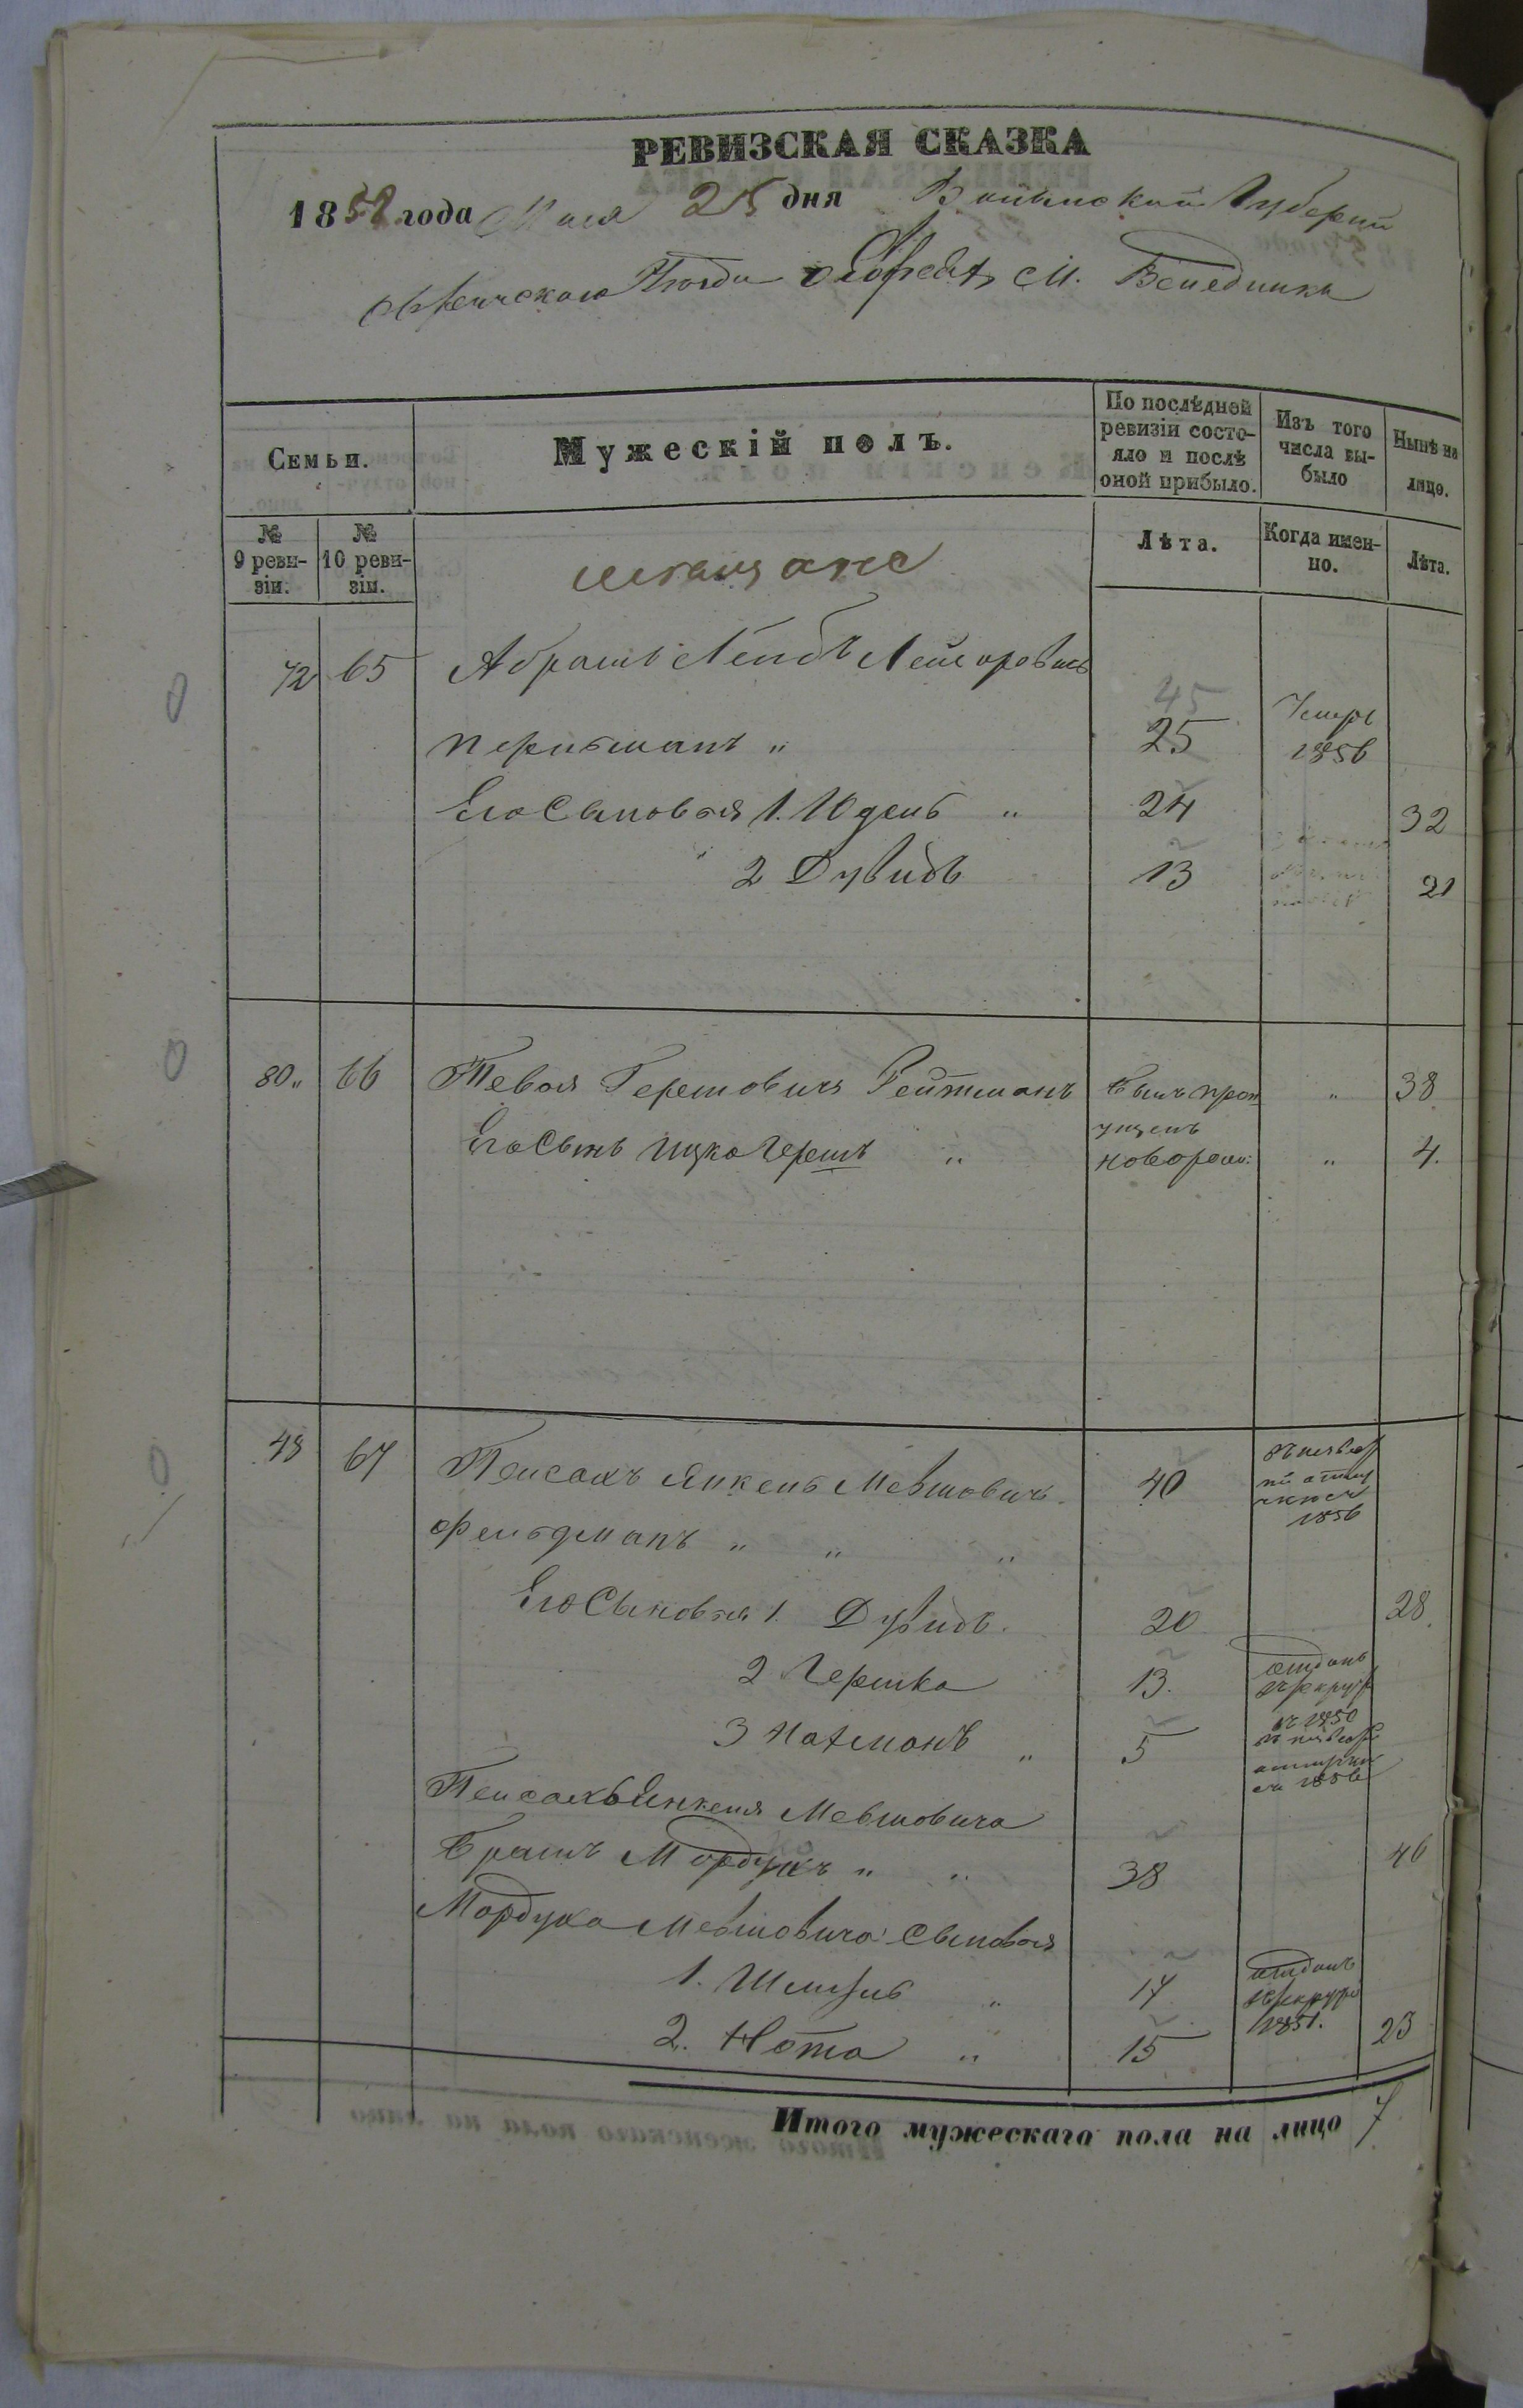 РЕВИЗСКАЯ СКАЗКА
1858 года Мая 25 дня Волынской Губернии
Овручского Уѣзда о Евреяхъ М. Веледникъ
Семьи.
Мужескій полъ.
По послѣдней ревизіи состояло и послѣ оной прибыло.
Изъ того числа выбыло
Нынѣ на лицо.
№ 9 ревизіи.
№ 10 ревизіи.
мѣщане
Лѣта.
Когда именно.
Лѣта.
72 65 Абрамъ Лейбъ Лейзоровичъ
45
Перельманъ " 25 Умеръ 1856
Его Сыновья 1. Юдель " 24 32
2 Дувидъ 13 21
80 " 66 Тевья Гершовичъ Ройтманъ былъ пропущенъ " 38
Его Сынъ Ицко Гершъ " новорожд: " 4.
48 67 Пейсахъ Янкель Мевшовичъ 40 1856
Фельдманъ " " "
Его Сыновья 1. Дувидъ. 20 28
2 Гершко 13. отданъ въ рекруты въ 1850
3 Нахманъ " 5 1856
Пейсахъ Янкеля Мевшовича
братъ Мордухъ " " 38 46
Мордуха Мевшовича Сыновья
1. " 17 отданъ въ рекруты 1851.
2. Нота " 15 23
Итого мужескаго пола на лицо 7